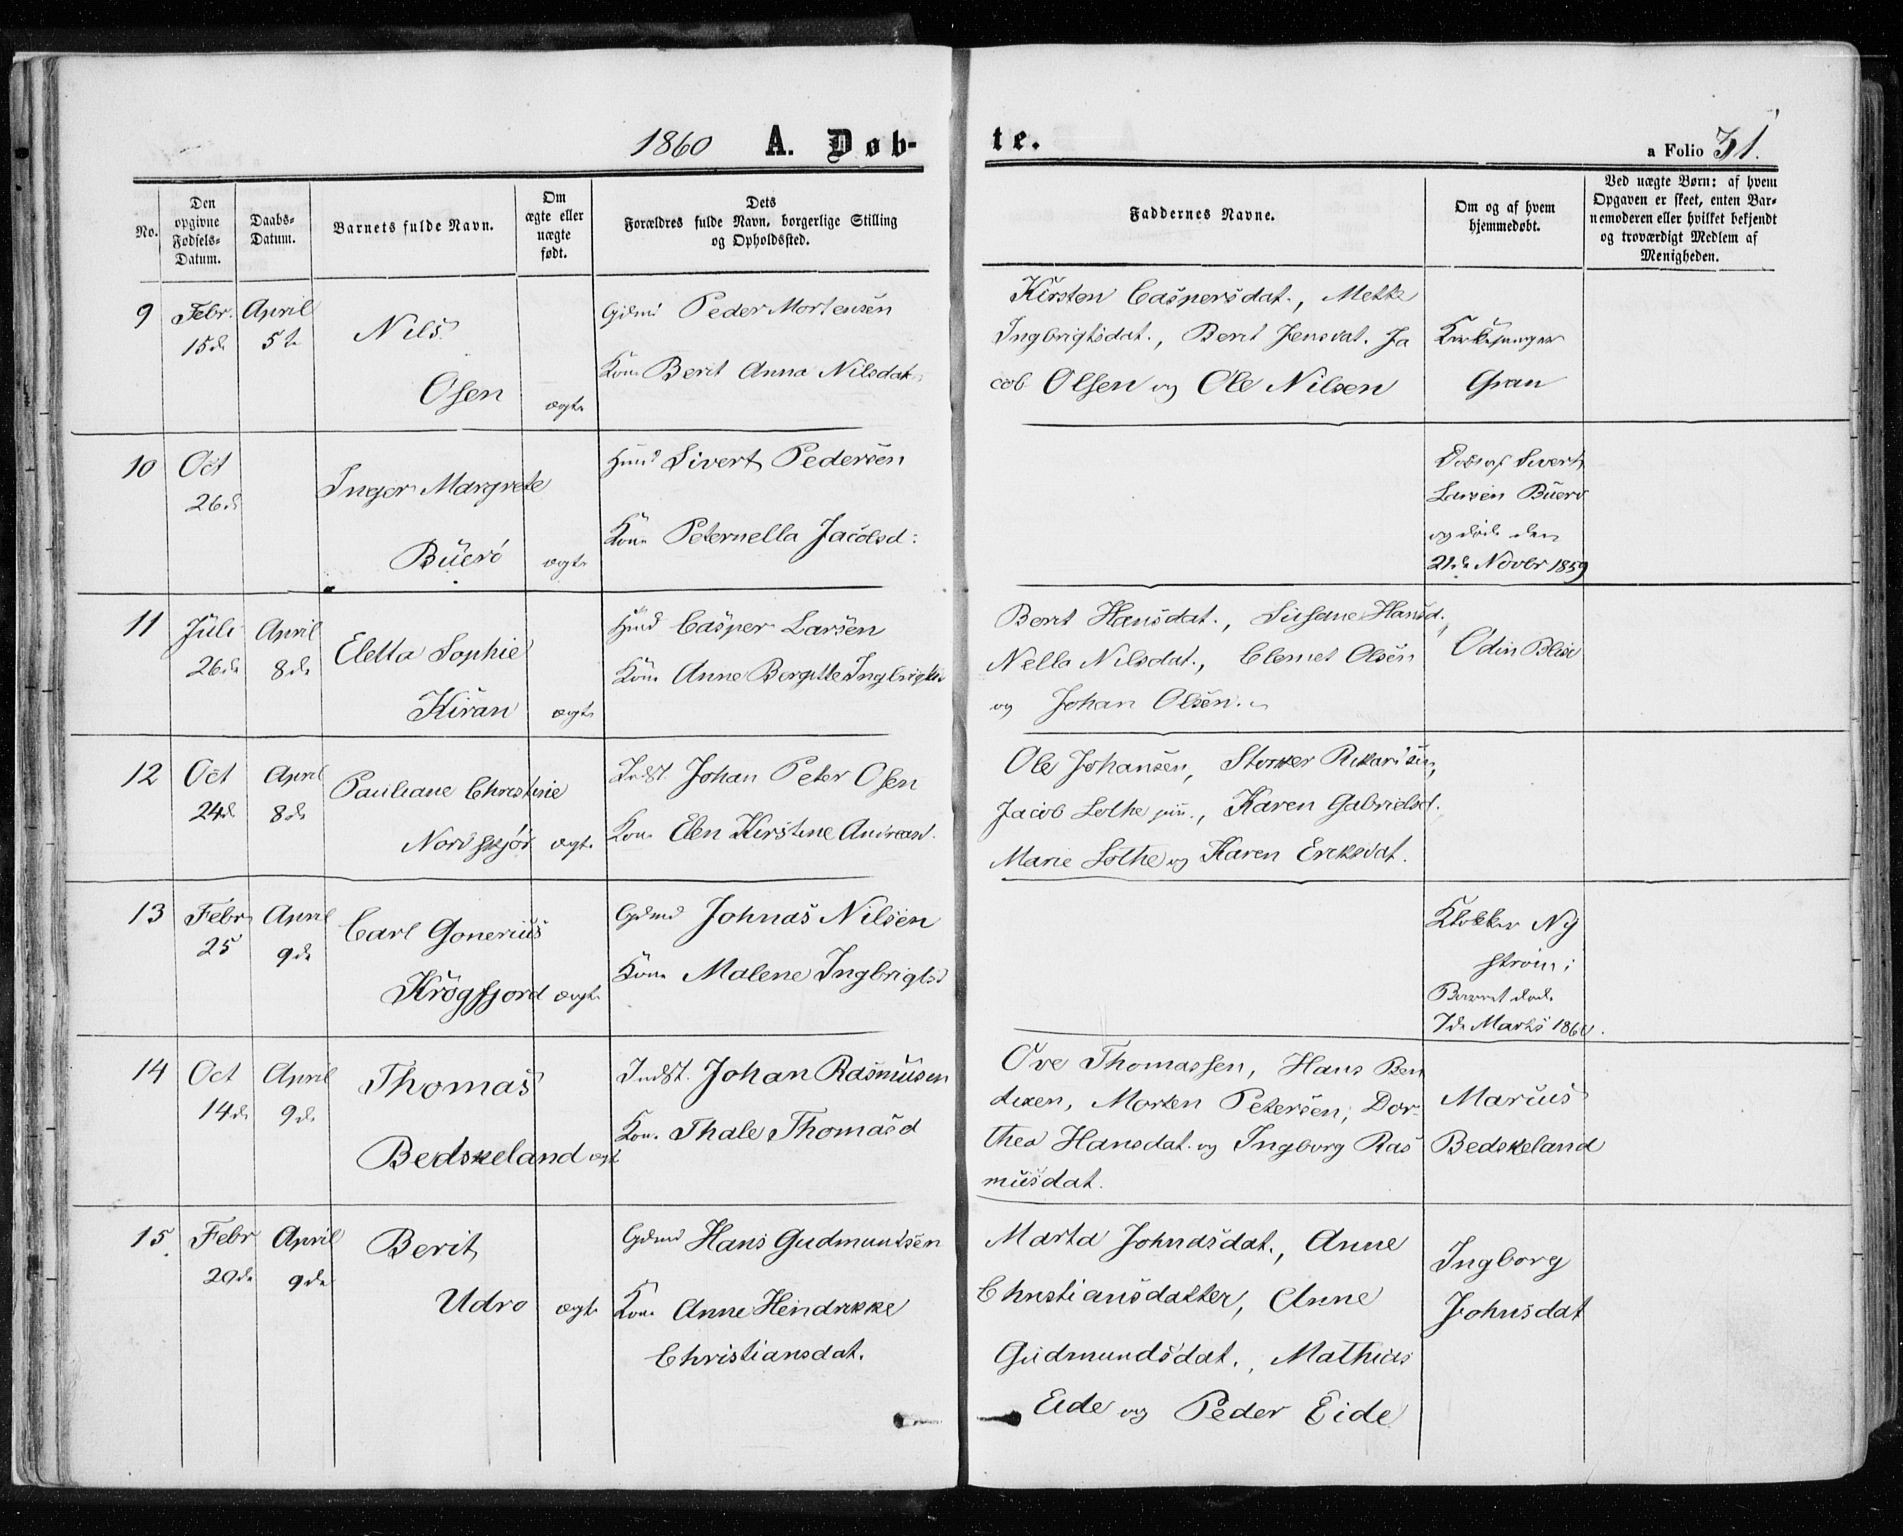 1860 A. Døb-
te.
a Folio 31.
No.
Den opgivne Fødsels-Datum.
Daabs-Datum.
Barnets fulde Navn.
Om ægte eller uægte født.
Dets Forældres fulde Navn, borgerlige Stilling og Opholdssted.
Faddernes Navne.
Om og af hvem hjemmedøbt.
Ved uægte Børn: af hvem Opgaven er skeet, enten Barnemoderen eller hvilket bekjendt og troværdigt Medlem af Menigheden.
9 Febr. April Nils Gdmd Peder Mortensen
15de 5te Osen ægte Kone Berit Anna Nilsdat
Kirsten Caspersdat., Mette
Ingbrigtsdat., Berit Jensdat. Ja
cob Olsen og Ole Nilsen
Kirkesanger
Gran
10 Oct Inger Margrete Huusmd Sivert Pedersen
26de Büerö ægte Kone Peternella Jacobsd:
Døbt af Sivert
Larsen Büerö
og døde den
21de Novbr 1859
11 Juli April Eletta Sophie Hmd Casper Larsen
26de 8de Kiran ægte Kone Anne Bergitte Ingbrigtsd
Berit Hansdat., Susane Hansd.,
Nella Nilsdat., Clemet Olsen
og Johan Olsen.
Odin Blix
12 Oct April Pauliane Christine Indst. Johan Peter Osen
24de 8de Nordskjør ægte Kone Elen Kirstine Andreasd.
Ole Johansen, Storker Rikardsen,
Jacob Lothe jun., Karen Gabrielsd.
Marie Lothe og Karen Ericksdat.
13 Febr April Carl Gonerius Gdmd Johnas Nilsen
25 9de Krøgfjord ægte Kone Malene Ingbrigtsd
Klokker Ny
strøm;
Barnet døde
7de Marts 1860.
14 Oct April Thomas Indst. Johan Rasmusen
14de 9de Bedskeland ægt Kone Thale Thomasd
Ove Thomassen, Hans Ben
dixen, Morten Petersen, Dor-
thea Hansdat. og Ingborg Ras
musdat.
Marius
Bedskeland
15. Febr April Berit Gdmd Hans Gudmundsen
20de 9de Udro ægte Kone Anne Hendrikke
Christiansdat.
Marta Johnasdat., Anne
Christiansdatter, Anne
Gudmundsdat., Mathias
Eide og Peder Eide
Ingborg
Johnsdat